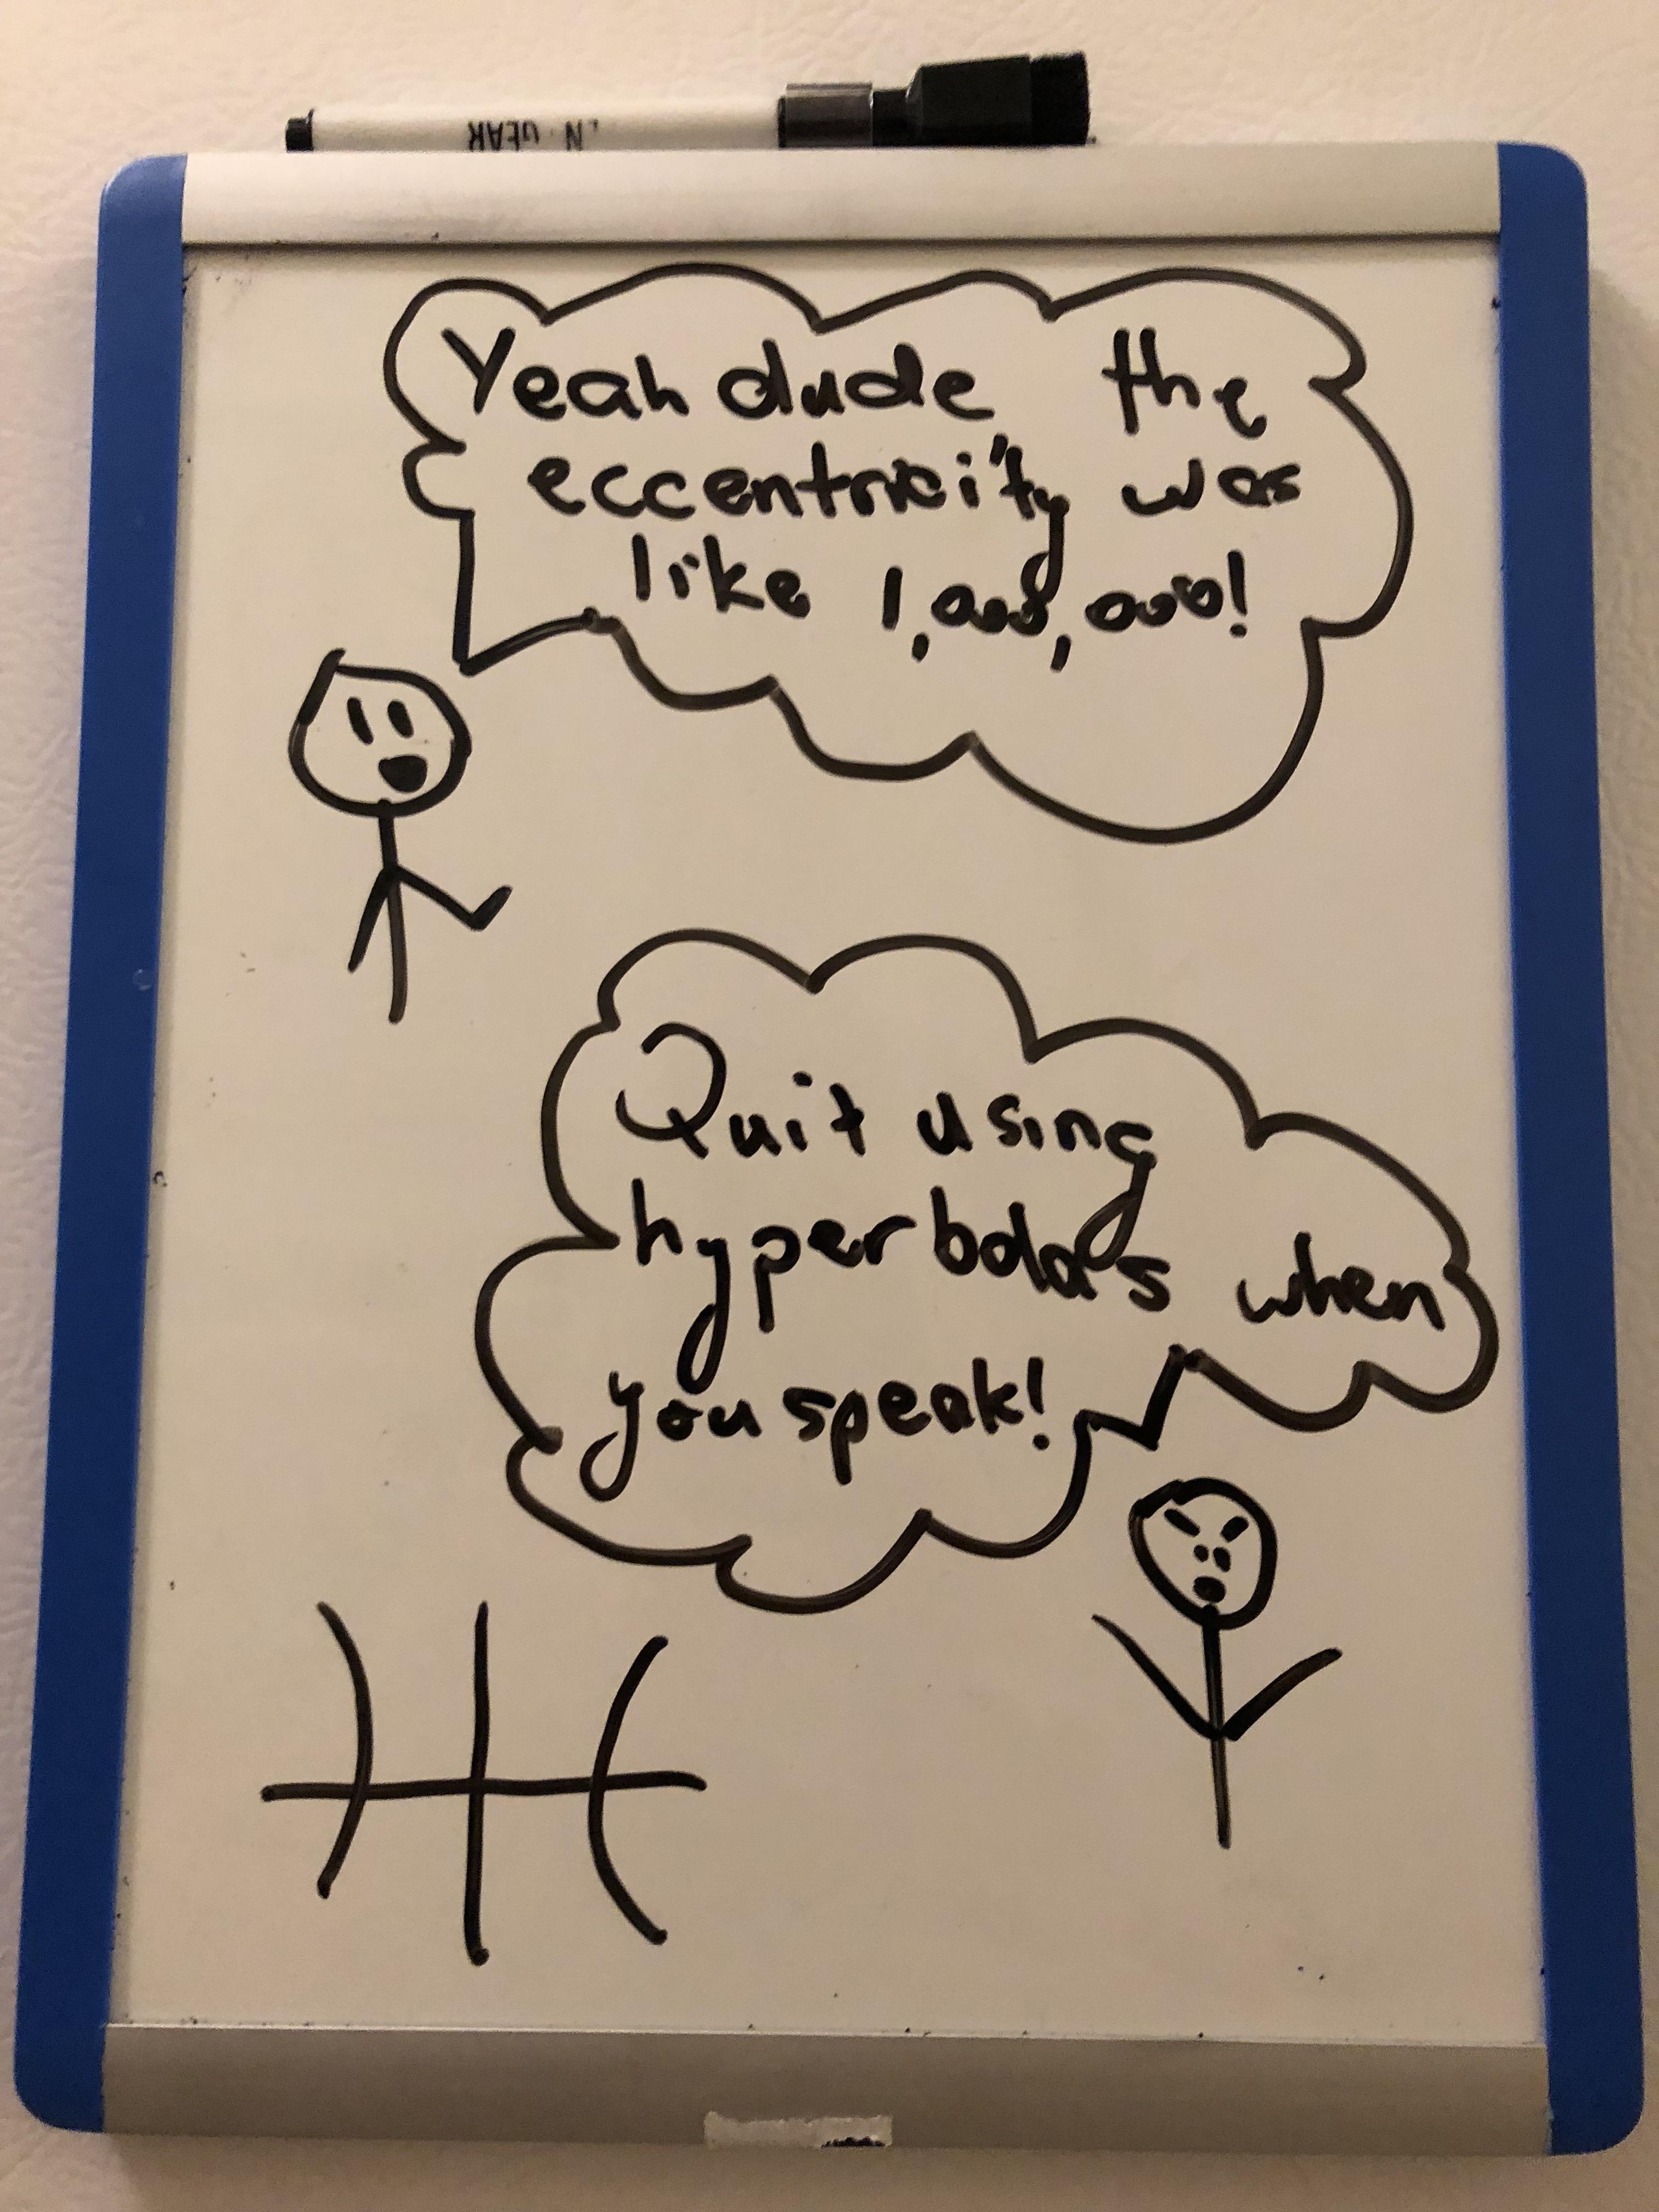 Yeah dude the
eccentricity was
like 1,000,000!
Quit using
hyperbolas when
you speak!